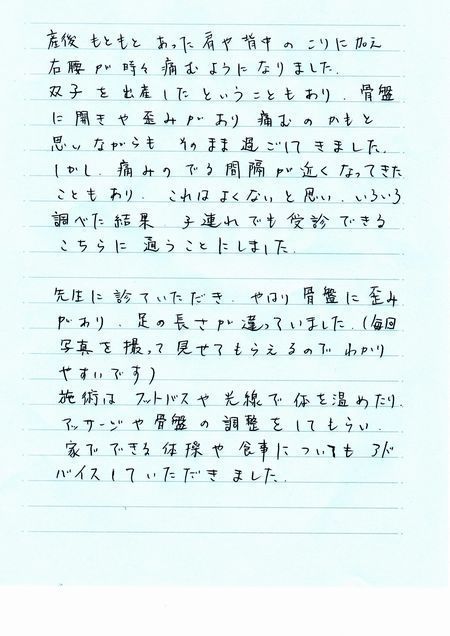 産後 もともと あった 肩や背中 の こりに加え
右腰が時々痛むようになりました.
双子を出産したということもあり、骨盤
に開きや歪みがあり痛むのかもと
思いながらも そのまま過ごしてきました.
しかし、痛みのでる間隔が近くなってきた
こともあり、これはよくないと思い、いろいろ
調べた結果、子連れでも受診できる
こちらに通うことにしました.
先生に診ていただき、やはり骨盤に歪み
があり、足の長さが違っていました.(毎回
写真を撮って見せてもらえるのでわかり
やすいです)
施術はフットバスや光線で体を温めたり、
マッサージや骨盤の調整をしてもらい、
家でできる体操や食事についてもアド
バイスしていただきました.